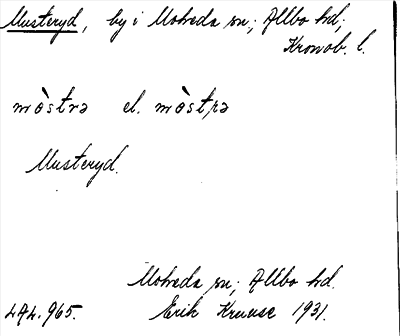 Musteryd, by i Moheda sn; Allbo hd;
Kronob. l.
mòstrə el. mòstrə
Musteryd.
Moheda sn; Allbo hd.
LAL. 965. Erik Kruuse 1931.